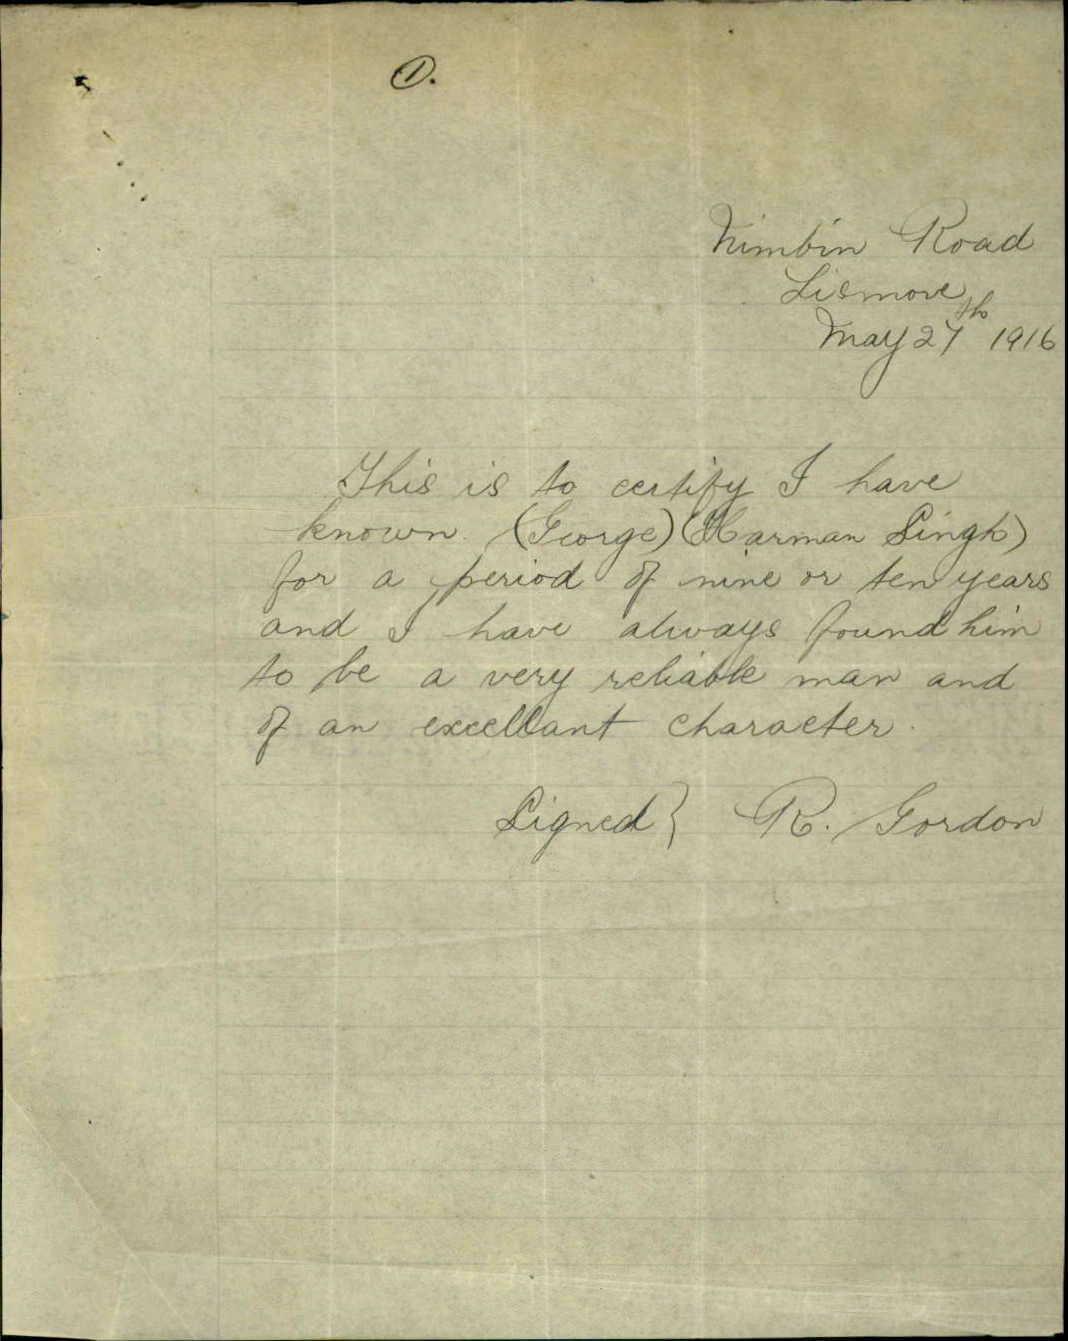 1.
Nimbin Road
Lismore
May 27th 1916
This is to certify I have
known (George) (Harman Singh)
for a period of nine or ten years
and I have always found him
to be a very reliable man and
of an excellant character.
Signed} R. Gordon